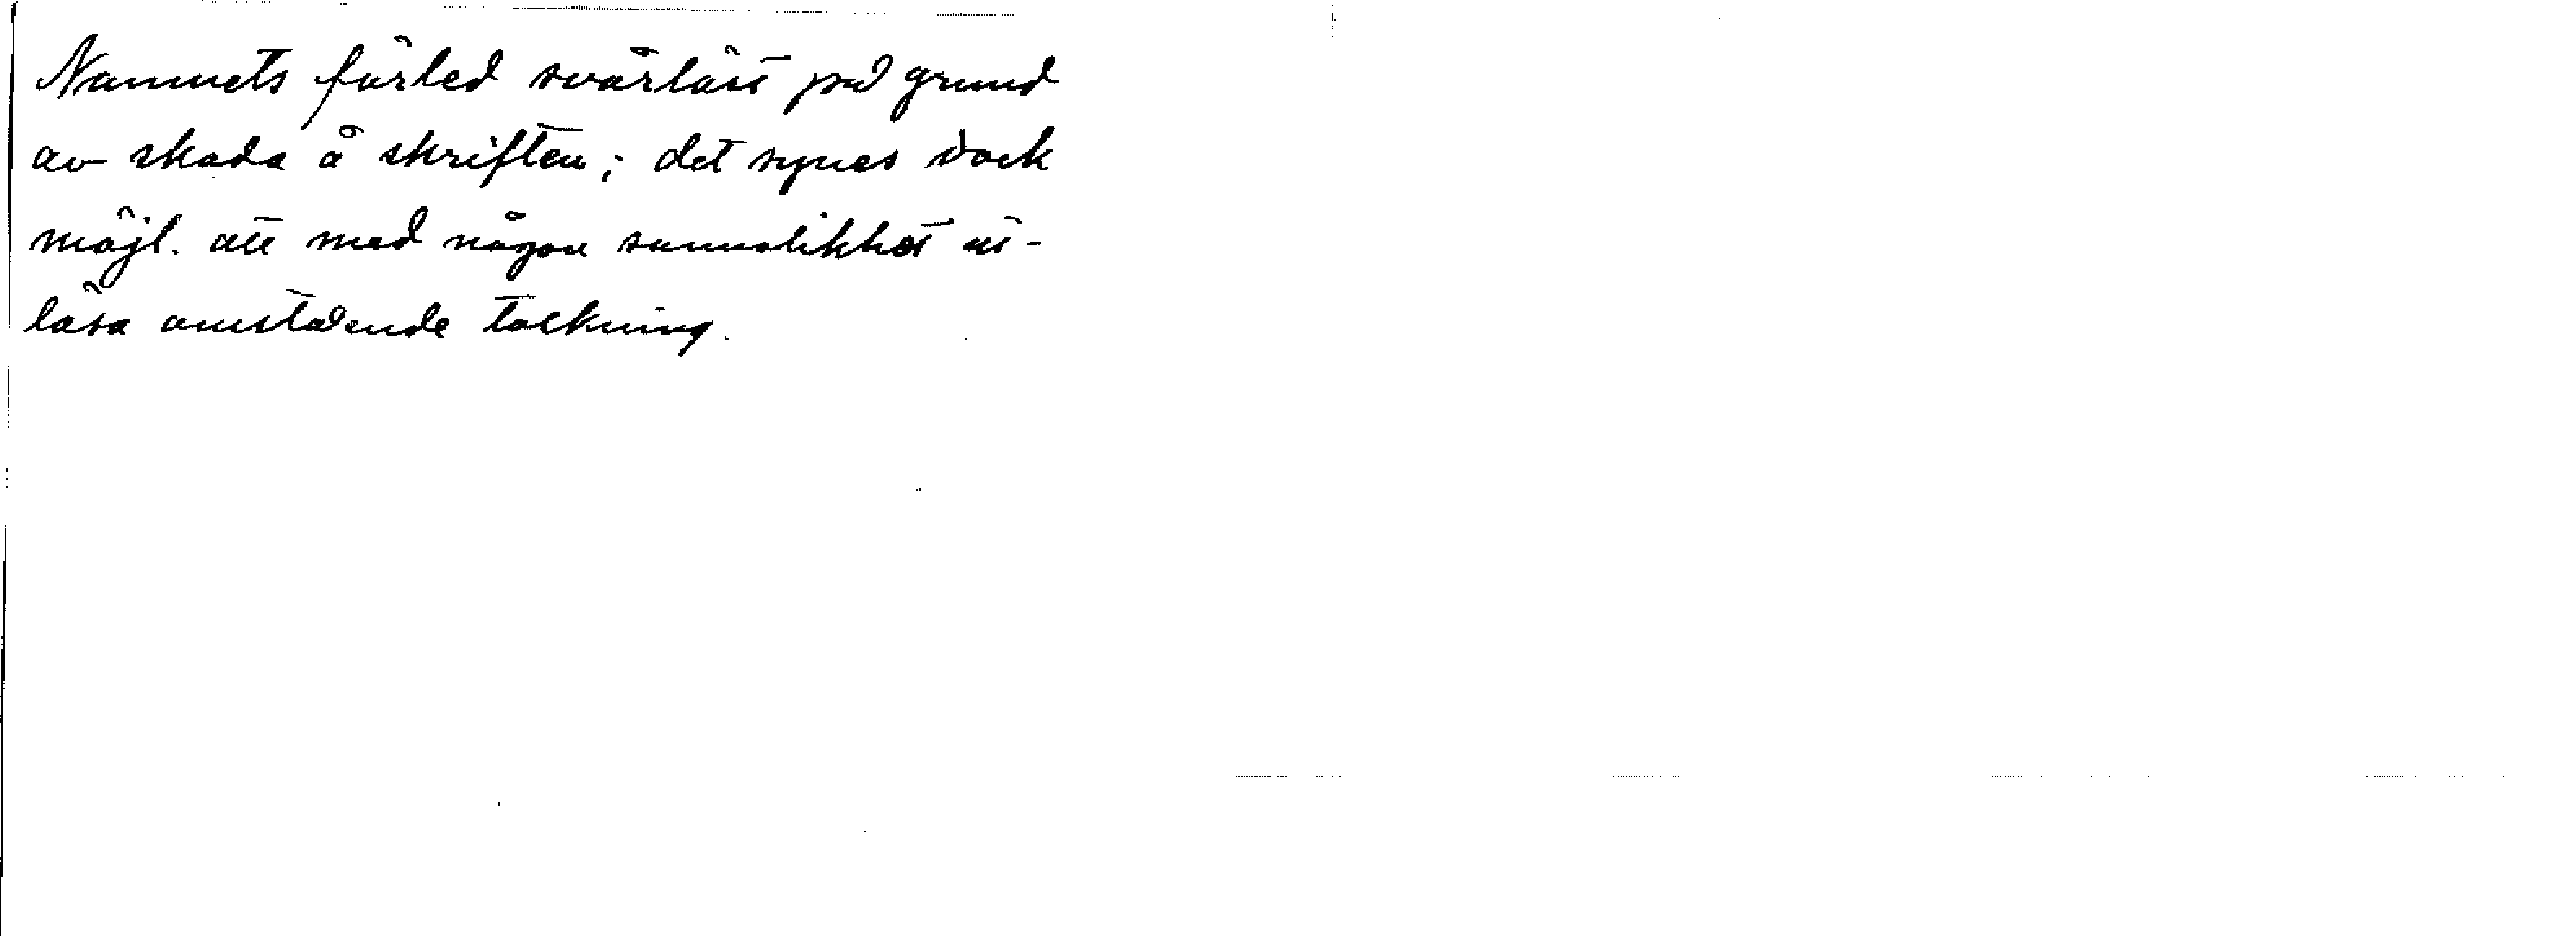 Namnets förled svårläst på grund
av skada å skriften; det synes dock
möjl. att med någon sannolikhet ut-
läsa omstående tolkning.